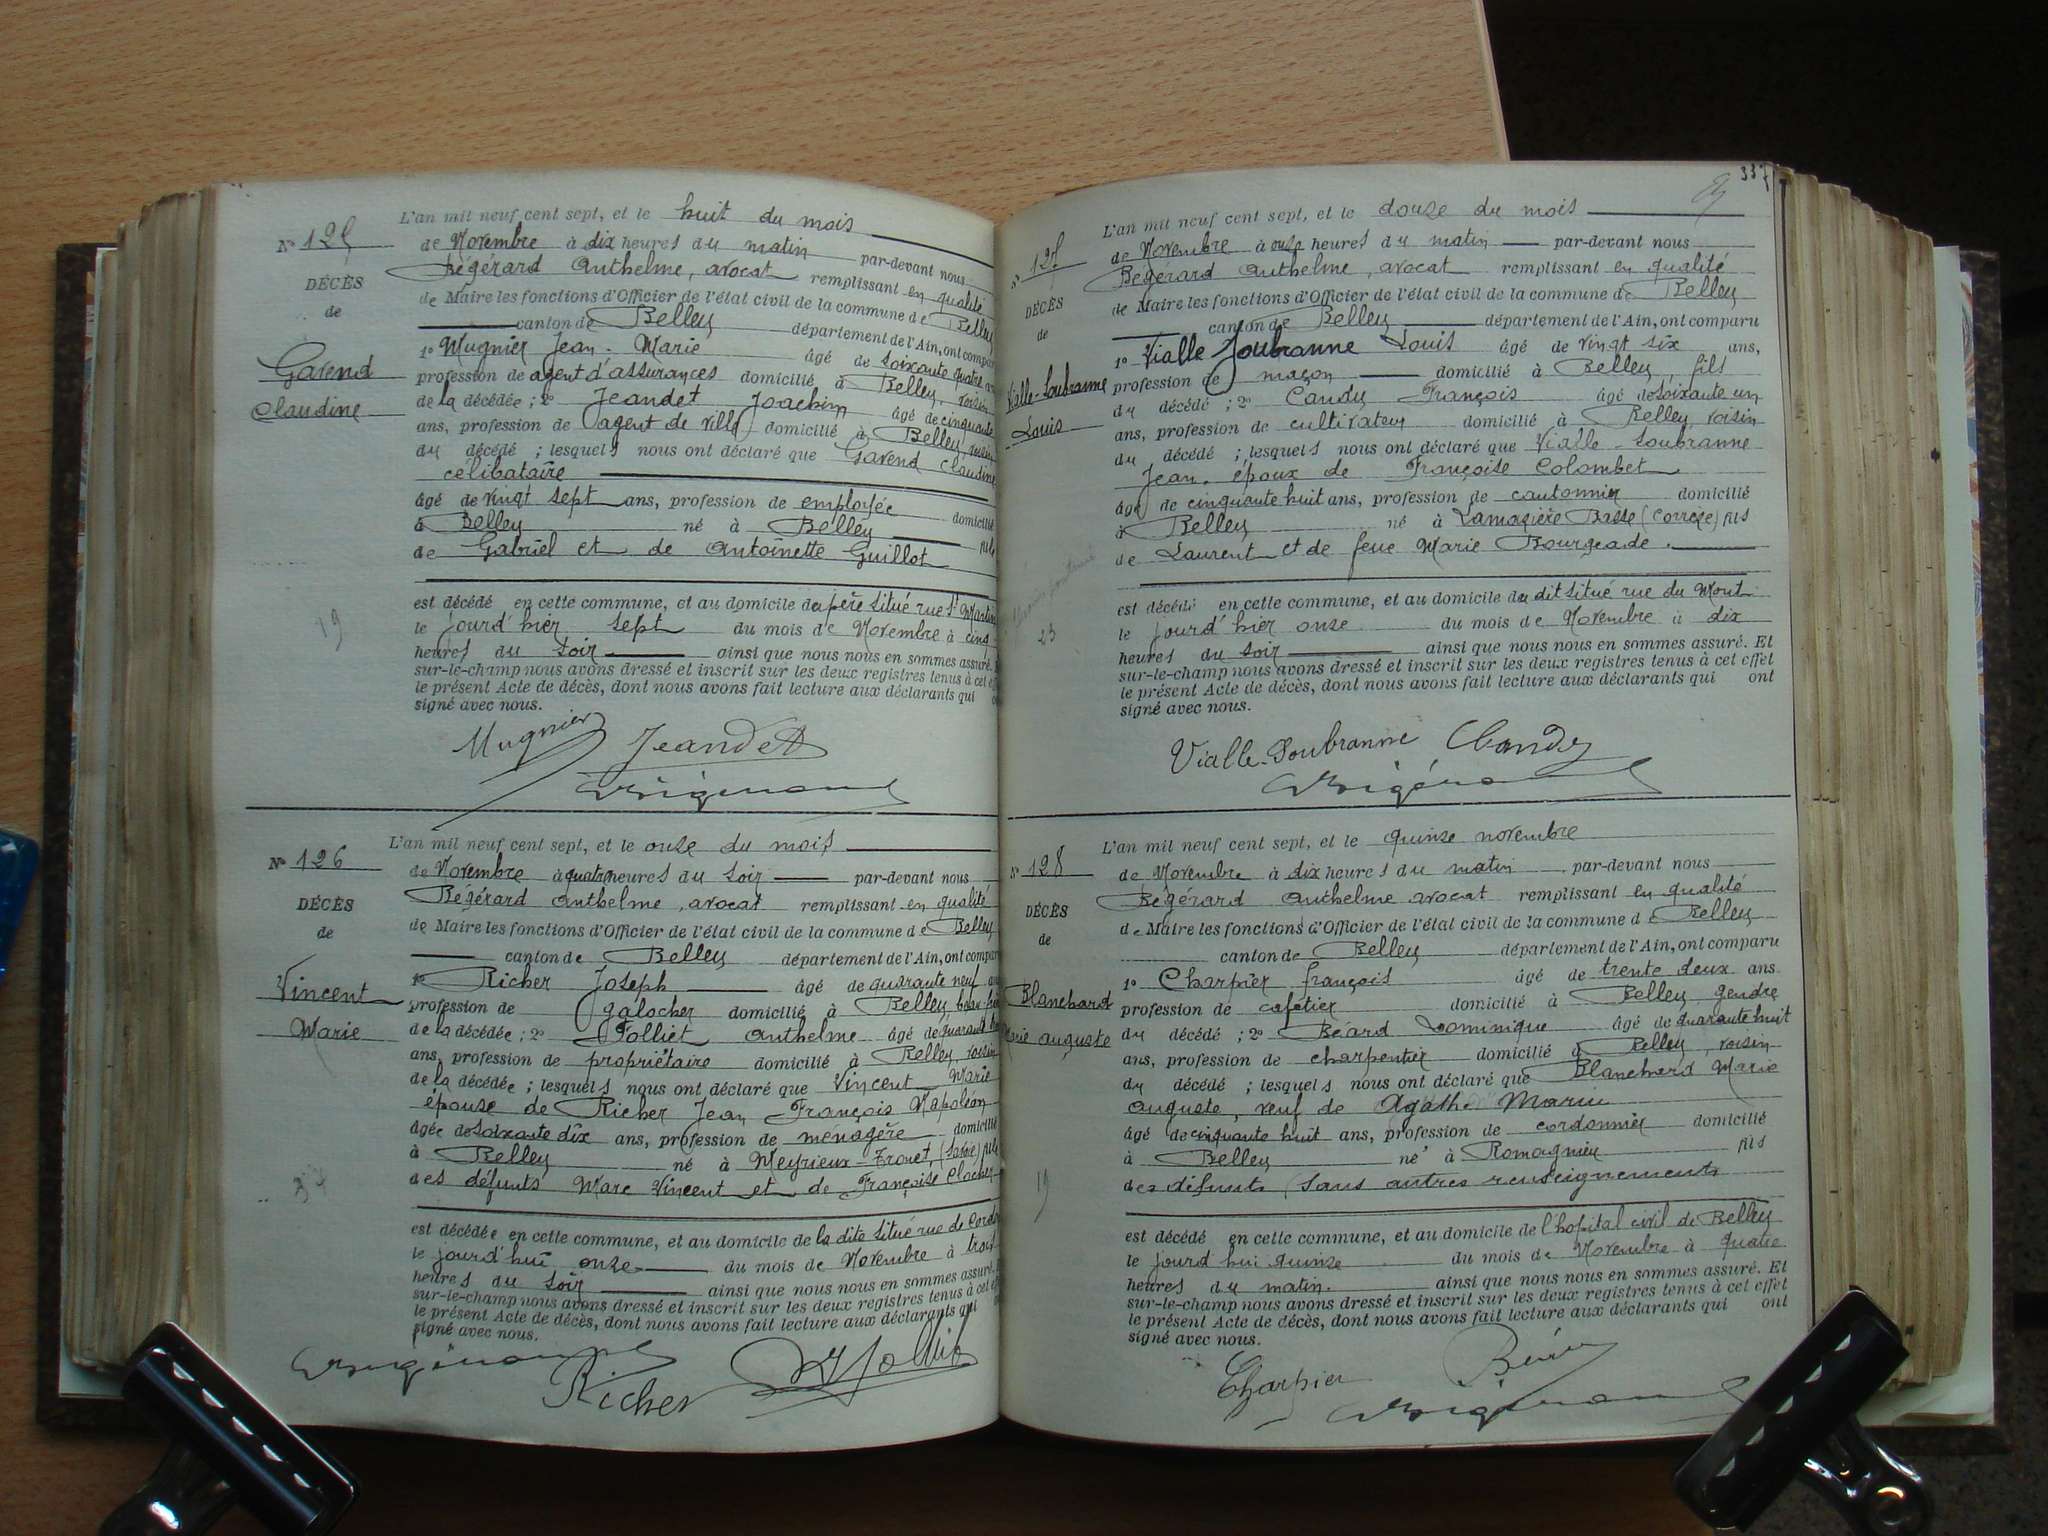 L'an mil neuf cent sept, et le huit du mois
N° 125
de Novembre à dix heures du matin par-devant nous
Bégérard Anthelme, avocat remplissant en qualité
DÉCÈS
de Maire les fonctions d'Officier de l'état civil de la commune de Belley
de
canton de Belley département de l'Ain, ont comparu
1° Mugnier Jean-Marie âgé de soixante quatre
Gavend
profession de agent d'assurances domicilié à Belley, voisin
Claudine
de la décédée ; 2° Jeandet Joachim âgé de cinquante
ans, profession de agent de ville domicilié à Belley, voisin
du décédé ; lesquels nous ont déclaré que Gavend Claudine
célibataire
âgé de vingt sept ans, profession de employée domicilié
à Belley né à Belley fils
de Gabriel et de Antoinette Guillot
est décédé en cette commune, et au domicile du père situé rue St Martin
19
le jourd'hier sept du mois de Novembre à cinq
heures du soir ainsi que nous nous en sommes assuré. Et
sur-le-champ nous avons dressé et inscrit sur les deux registres tenus à cet
le présent Acte de décès, dont nous avons fait lecture aux déclarants qui
signé avec nous.
Mugnier Jeandet
L'an mil neuf cent sept, et le onze du mois
N° 126
de Novembre à quatre heures du soir par-devant nous
Bégérard Anthelme, avocat remplissant en qualité
DÉCÈS
de Maire les fonctions d'Officier de l'état civil de la commune de Belley
de
canton de Belley département de l'Ain, ont comparu
1° Richer Joseph âgé de quarante neuf
Vincent
profession de galocher domicilié à Belley, beau-frère
Marie
de la décédée ; 2° Folliet Anthelme âgé de quarante
ans, profession de propriétaire domicilié à Belley, voisin
de la décédée ; lesquels nous ont déclaré que Vincent Marie
épouse de Richer Jean François Napoléon
âgée de soixante dix ans, profession de ménagère domicilié
à Belley né à Meyrieux-Trouet, (Savoie) fille
des défunts Marc Vincent et de Françoise
37
est décédée en cette commune, et au domicile de la dite situé rue de
le jourd'hui onze du mois de Novembre à trois
heures du soir ainsi que nous nous en sommes assuré. Et
sur-le-champ nous avons dressé et inscrit sur les deux registres tenus à cet
le présent Acte de décès, dont nous avons fait lecture aux déclarants qui
signé avec nous.
Richer
337
L'an mil neuf cent sept, et le douze du mois
N° 127
de Novembre à onze heures du matin par-devant nous
Bégérard Anthelme, avocat remplissant en qualité
DÉCÈS
de Maire les fonctions d'Officier de l'état civil de la commune de Belley
de
canton de Belley département de l'Ain, ont comparu
1° Vialle Soubranne Louis âgé de vingt six ans,
Vialle-Soubranne
profession de maçon domicilié à Belley, fils
Louis
du décédé ; 2° Candy François âgé de soixante un
ans, profession de cultivateur domicilié à Belley, voisin
du décédé ; lesquels nous ont déclaré que Vialle-Soubranne
Jean, époux de Françoise Colombet
âgé de cinquante huit ans, profession de cantonnier domicilié
à Belley né à Lamazière Basse (Corrèze) fils
de Laurent et de feue Marie Bourgeade.
est décédé en cette commune, et au domicile du dit situé rue du Mont
23
le jourd'hier onze du mois de Novembre à dix
heures du soir ainsi que nous nous en sommes assuré. Et
sur-le-champ nous avons dressé et inscrit sur les deux registres tenus à cet effet
le présent Acte de décès, dont nous avons fait lecture aux déclarants qui ont
signé avec nous.
Vialle-Soubranne Candy
L'an mil neuf cent sept, et le quinze novembre
N° 128
de Novembre à dix heures du matin par-devant nous
Bégérard Anthelme avocat remplissant en qualité
DÉCÈS
de Maire les fonctions d'Officier de l'état civil de la commune de Belley
de
canton de Belley département de l'Ain, ont comparu
1° Charpier François âgé de trente deux ans
Blanchard
profession de cafetier domicilié à Belley, gendre
Marie auguste
du décédé ; 2° Béard Dominique âgé de quarante huit
ans, profession de charpentier domicilié à Belley, voisin
du décédé ; lesquels nous ont déclaré que Blanchard Marie
auguste, veuf de Agathe Marin
âgé de cinquante huit ans, profession de cordonnier domicilié
à Belley né à Romagnieu fils
des défunts (sans autres renseignements
19
est décédé en cette commune, et au domicile de l'hopital civil de Belley
le jourd'hui quinze du mois de Novembre à quatre
heures du matin. ainsi que nous nous en sommes assuré. Et
sur-le-champ nous avons dressé et inscrit sur les deux registres tenus à cet effet
le présent Acte de décès, dont nous avons fait lecture aux déclarants qui ont
signé avec nous.
Charpier